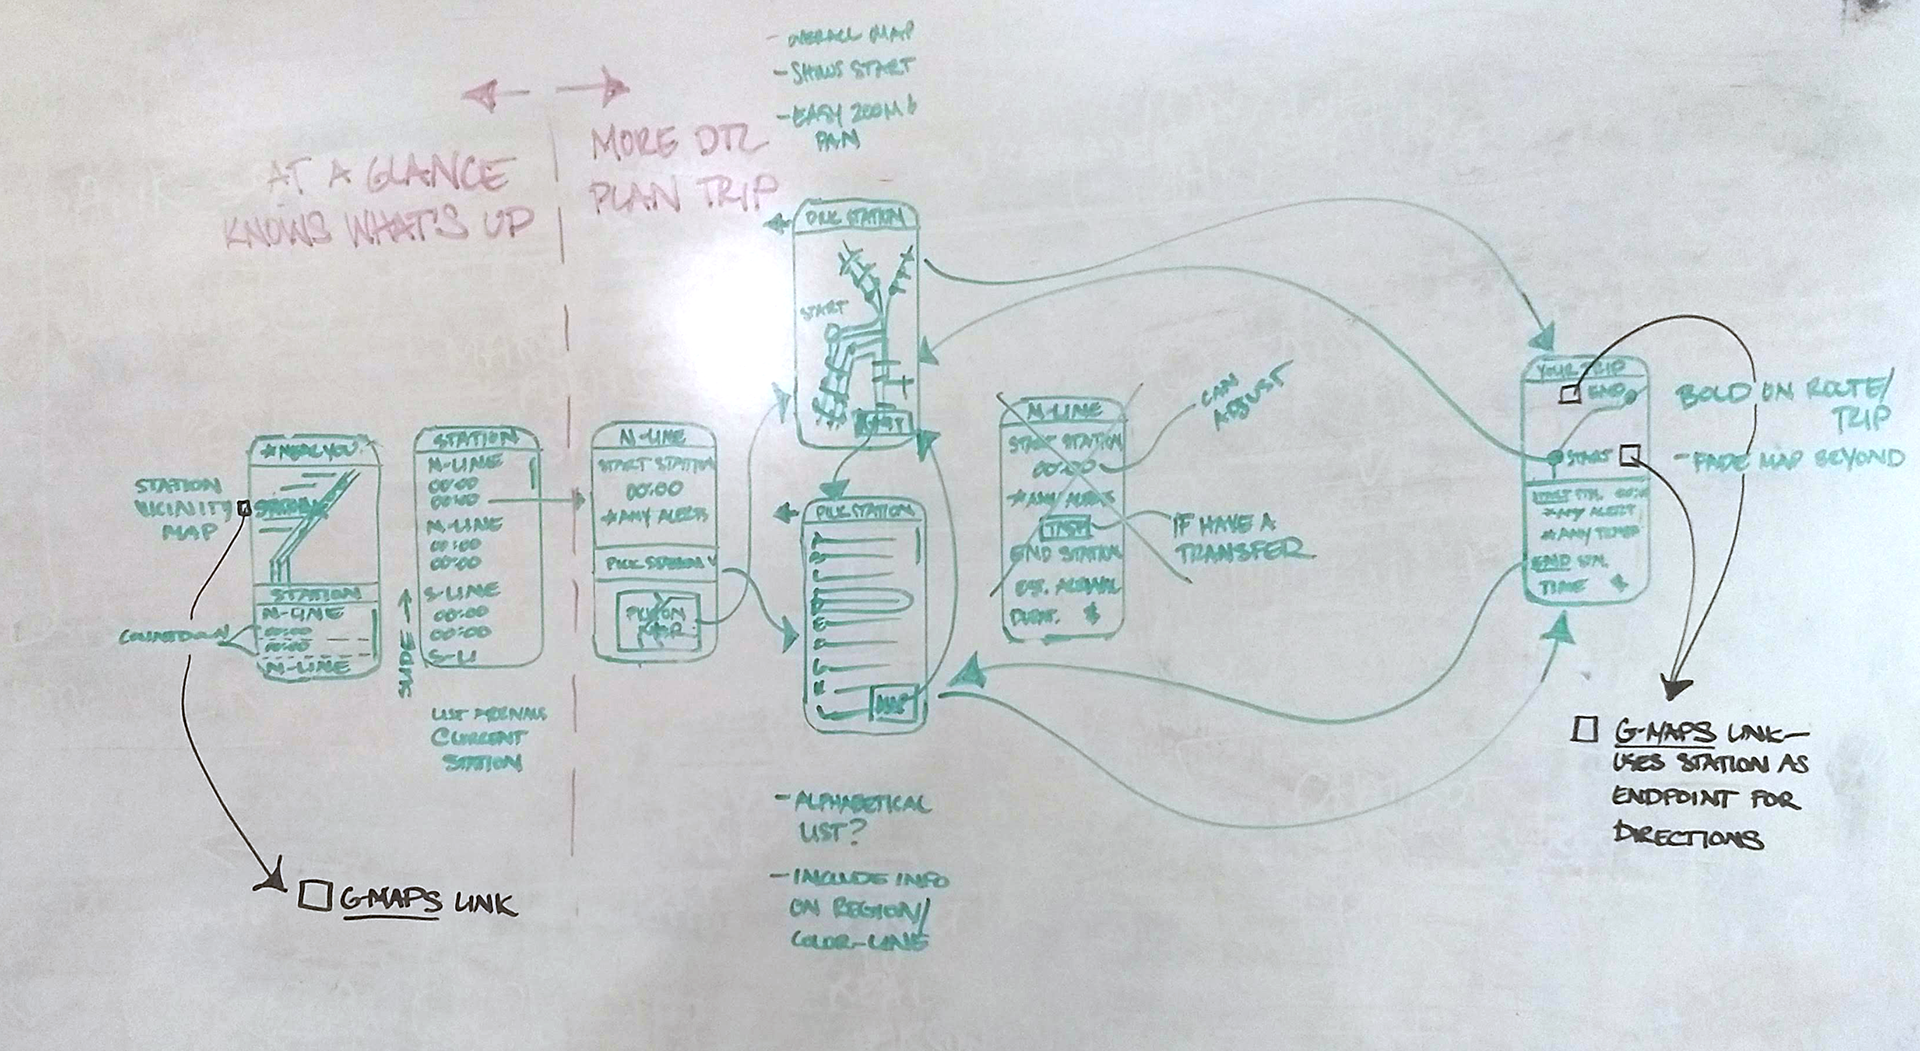 - OVERALL MAP
- SHOWS START
- EASY ZOOM &
PAN
AT A GLANCE
KNOWS WHAT'S UP
MORE DTL
PLAN TRIP
STATION
VICINITY
MAP
* NEAR YOU
STATION
STATION
N-LINE
00:00
00:00
N-LINE
COUNTDOWN
G-MAPS LINK
SLIDE
STATION
N-LINE
00:00
00:00
N-LINE
00:00
00:00
S-LINE
00:00
00:00
S-LI
LIST ARRIVALS
CURRENT
STATION
N-LINE
START STATION
00:00
* ANY ALERTS
PICK STATION
PICK ON
MAP
STATION
START
LIST
PICK STATION
MAP
- ALPHABETICAL
LIST?
- INCLUDE INFO
ON REGION/
COLOR-LINE
N-LINE
START STATION
00:00
* ANY ALERTS
END STATION
EST. ARRIVAL
$
CAN
ADJUST
IF HAVE A
TRANSFER
YOUR TRIP
END
START
* ANY ALERT
END STN.
TIME $
BOLD ON ROUTE/
TRIP
- FADE MAP BEYOND
G-MAPS LINK-
USES STATION AS
ENDPOINT FOR
DIRECTIONS